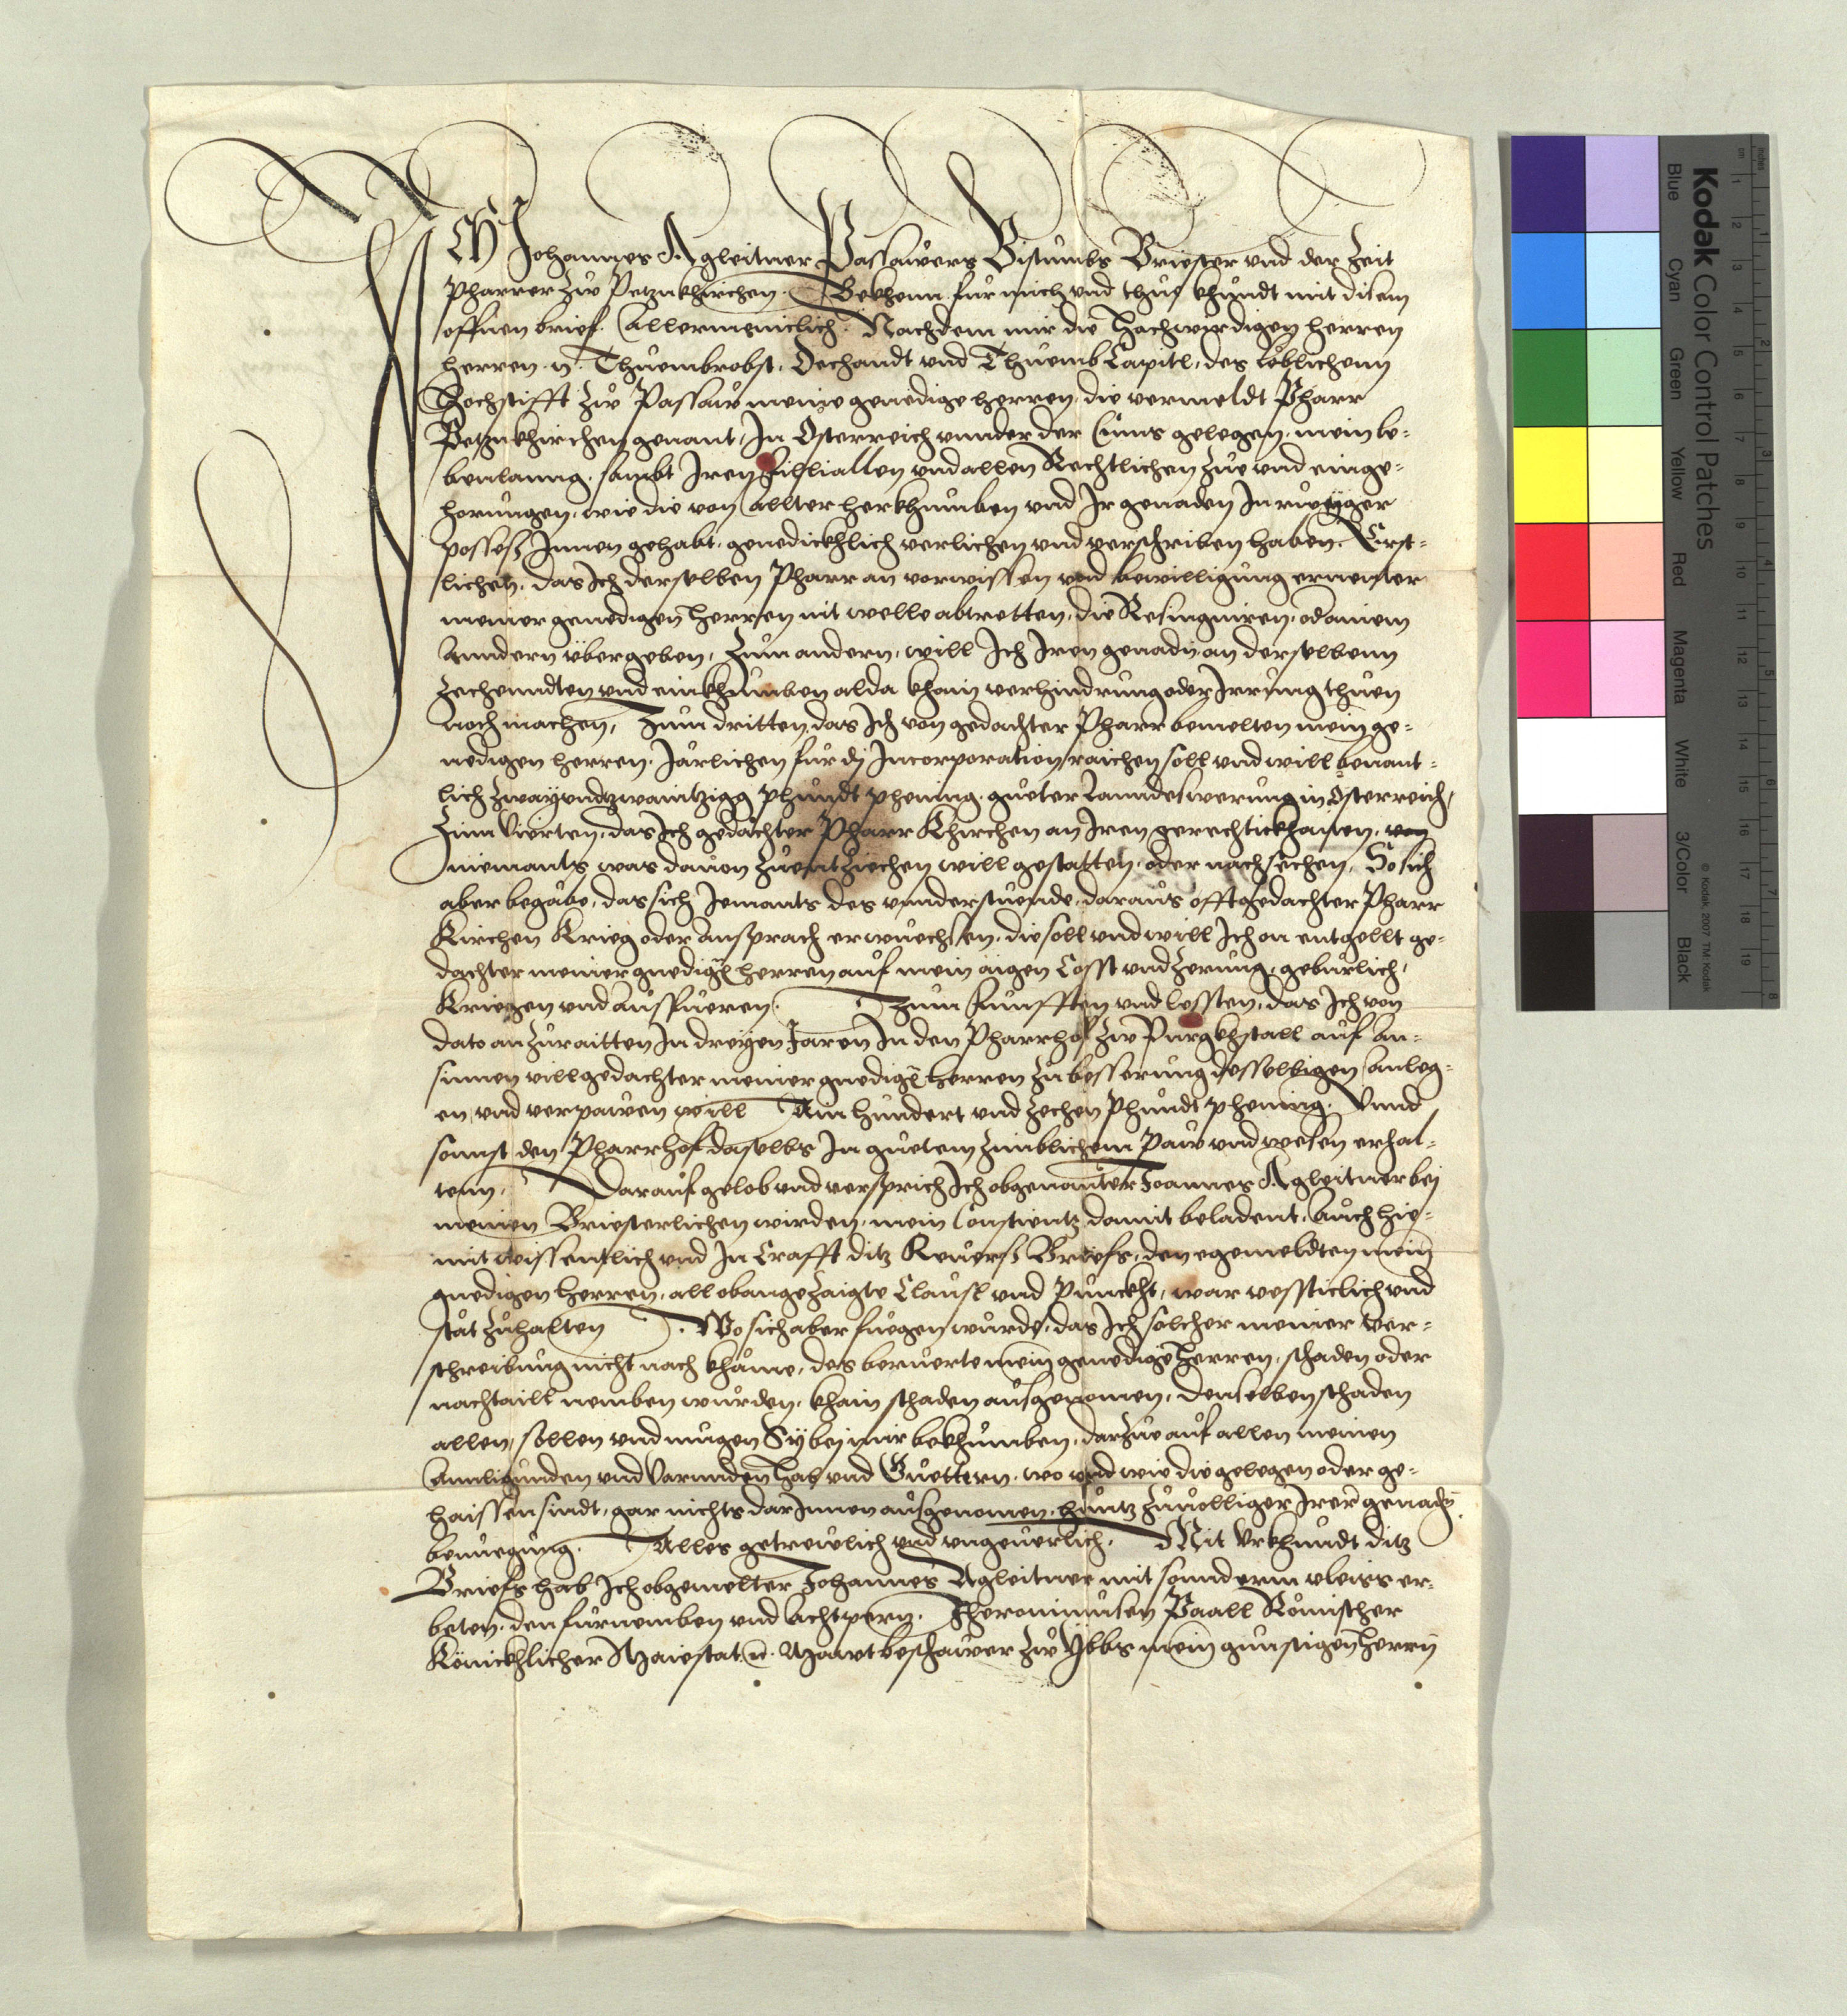 ICH Johannes Agleitner Passawers Bistumbs Briester vnd der Zeit
Pharrer zw Petznkhirchen. Bekhenn fur mich vnd thue khundt mit disem
offnen brief. Allermeniclich. Nachdem mir die Hochwirdigen herren
herren .N. Thuembrobst, Dechandt vnd Thuemb Capitl, des löblichenn
Hochstifft zw Passaw meine genedige herren, die vermeldt Pharr
Petznkhirchen genant, In Osterreich vnnder der Enns gelegen, mein le-
benlanng, sambt Iren Filliallen vnd allen Rechtlichen Zue vnd einge-
horungen, wie die von allter herkhumben vnd Ir genaden In rueyger
possess Innen gehabt, genedickhlich verlichen vnd verschriben haben. Erst-
lichen, das Ich derselben Pharr an vorwissen vnd bewilligung ernenter
meiner genedigen herren nit welle abtretten, die Resingniren, od ainem
Anndern vbergeben, Zum andern, will Ich Iren genadn an derselbenn
Zechenndten vnd einkhumben alda khain verhindrung oder Irrung thuen
noch machen, Zum dritten, das Ich von gedachter Pharr bemelten mein ge-
nedigen herren. Järlichen fur dj Incorporation raichen soll vnd will benant-
lich zwayvndzwaintzigg phundt phening, gueter Lanndeswerung in Osterreich,
Zum Vierten, das Ich gedachter Pharr Khirchen an Iren gerechtickhaiten, von
niemants was dauon zu entziechen will gestatten, oder nachsechen, So sich
aber begäbe, das sich Iemants des vnnderstuende, daraus offtgedachter Pharr
Kirchen Krieg oder Ansprach erwuechsen, die soll vnd will Ich on entgellt ge-
dachter meiner gnedign herren auf mein aigen Cosst vnd Zerung, geburlich,
Kriegen vnd ausfueren. Zum funfften vnd lessten, das Ich von
dato an zuraitten In dreyen Jaren In den Pharrhof zw Purgkhstall auf an-
sinnen villgedachter meiner gnedign herren zu besserung desselbigen anleg-
en vnd verpawen will Ain hundert vnd zechen phundt phening. Vnnd
sonnst den Pharrhof daselbs In guetem zimblichem Paw vnd wesen erhal-
tenn. Darauf gelob vnd versprich Ich obgenanter Joannes Agleitner bej
meinen Briesterlichen wirden, mein Constientz damit beladent, auch hie-
mit wissentlich vnd In Crafft ditz Reuerss Briefs, den egemeldten mein
gnedigen herren, all obangezaigte Clausl vnd Punckht, war vessticlich vnd
stät zuhalten. Wo sich aber fuegen wurde, das Ich solcher meiner Ver-
schreibung nicht nach khäme, des beruerte mein genedige herren, schaden oder
nachtaill nemben wurden, khain schaden ausgenomen, denselben schaden
allen, sollen vnd mugen Sy bej mir bekhumben, darzue auf allen meinen
Annligunden vnd Varunden hab vnd Guettern, wo vnd wie die gelegen oder ge-
haissen sindt, gar nichts darInnen ausgenomen, huntz zuuolliger Irer genadn
benuegung. Alles getrewlich vnd vngeuerlich. Mit Vrkhundt ditz
Briefs hab Ich obgemelter Johannes Agleitner mit sonnderm vleiss er-
beten, den furnemben vnd Achtpern. Iheronimusen Paall Römischer
Könickhlicher Maiestat .N. Mawtbeschawer zw Ybbs mein gunstigen herrn
Kodak Color Control Patches
Blue Cyan Green Yellow Red Magenta White 3/Color Black
© Kodak, 2007 TM: Kodak